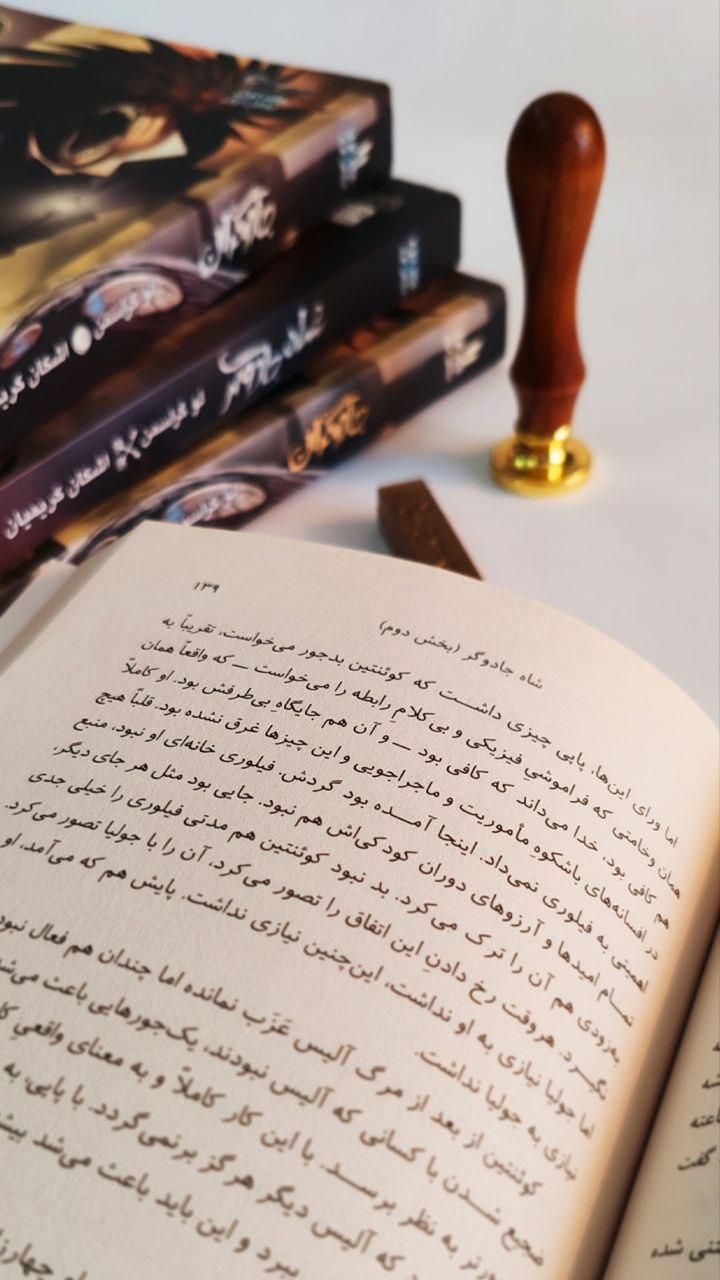 جادوگران
لو گراسمن اشکان کریمیان
شاه جادوگر
لو گراسمن اشکان کریمیان
جادوگران
لو گراسمن
۱۳۹
شاه جادوگر (بخش دوم)
اما ورای این‌ها، پاپی چیزی داشت که کوئنتین بدجور می‌خواست، تقریباً به
همان وخامتی که فراموشیِ فیزیکی و بی‌کلامِ رابطه را می‌خواست — که واقعاً همان
هم کافی بود، خدا می‌داند که کافی بود — و آن هم جایگاهِ بی‌طرفش بود. او کاملاً
در افسانه‌های باشکوهِ مأموریت و ماجراجویی و این چیزها غرق نشده بود. قلباً هیچ
اهمیتی به فیلوری نمی‌داد. اینجا آمده بود گردش. فیلوری خانه‌ای او نبود، منبع
تمام امیدها و آرزوهای دوران کودکی‌اش هم نبود. جایی بود مثل هر جای دیگر،
به‌زودی هم آن را ترک می‌کرد. بد نبود کوئنتین هم مدتی فیلوری را خیلی جدی
نگیرد. هروقت رخ دادنِ این اتفاق را تصور می‌کرد، آن را با جولیا تصور می‌کرد.
اما جولیا نیازی به او نداشت، این‌چنین نیازی نداشت. پایش هم که می‌آمد، او
نیازی به جولیا نداشت.
کوئنتین از بعد از مرگ آلیس عَزَب نمانده اما چندان هم فعال نبود
ضجیع شدن با کسانی که آلیس نبودند، یک‌جورهایی باعث می‌شد
به نظر برسد. با این کار کاملاً و به معنای واقعیِ
که آلیس دیگر هرگز برنمی‌گردد. با پاپی، به
ببرد و این باید باعث می‌شد
گفت
شده